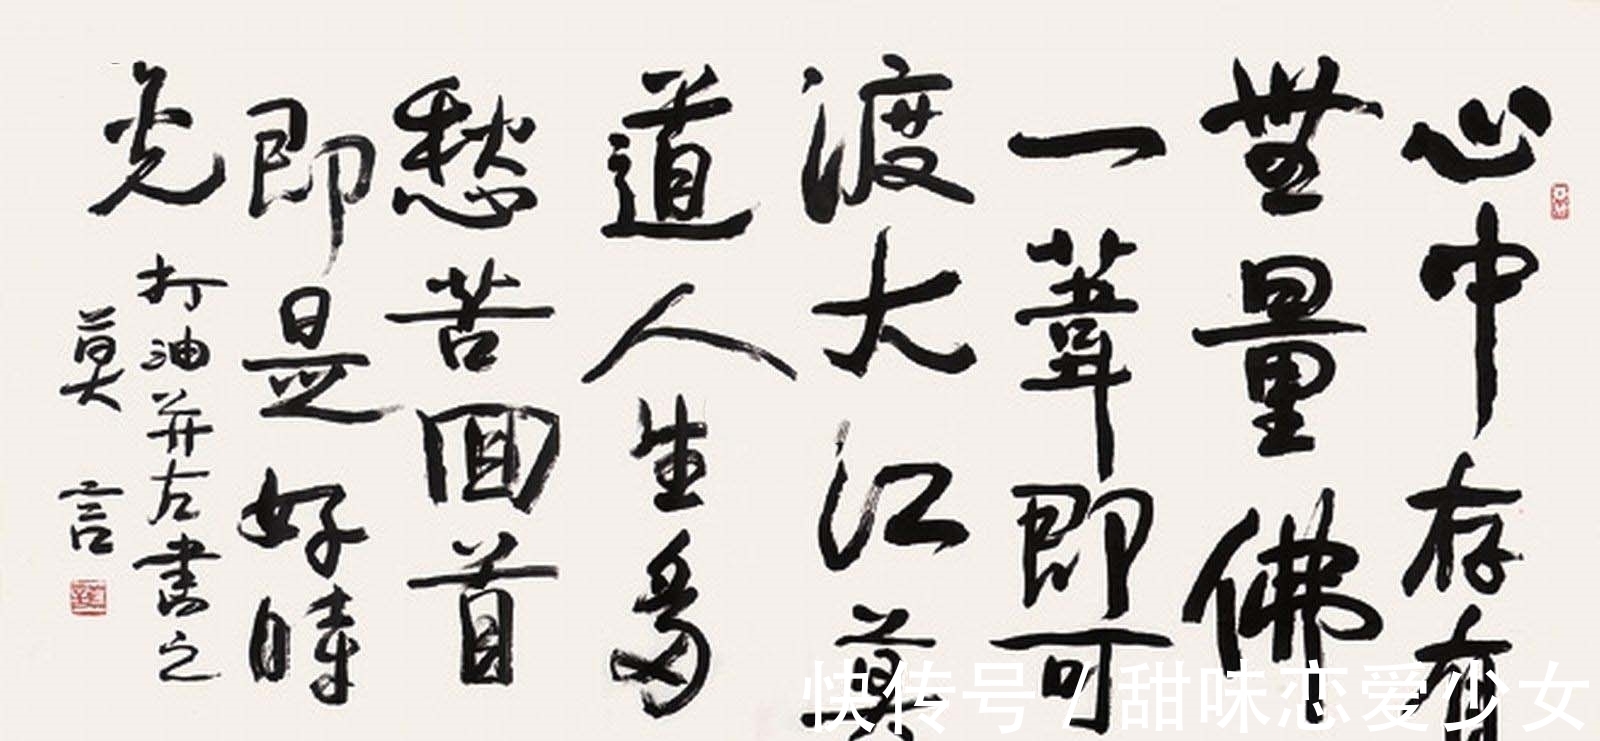 心中存有
無量佛
一葦即可
渡大江莫
道人生多
愁苦回首
即是好時
光
打油并左書之
莫言
快传号 / 甜味恋爱少女